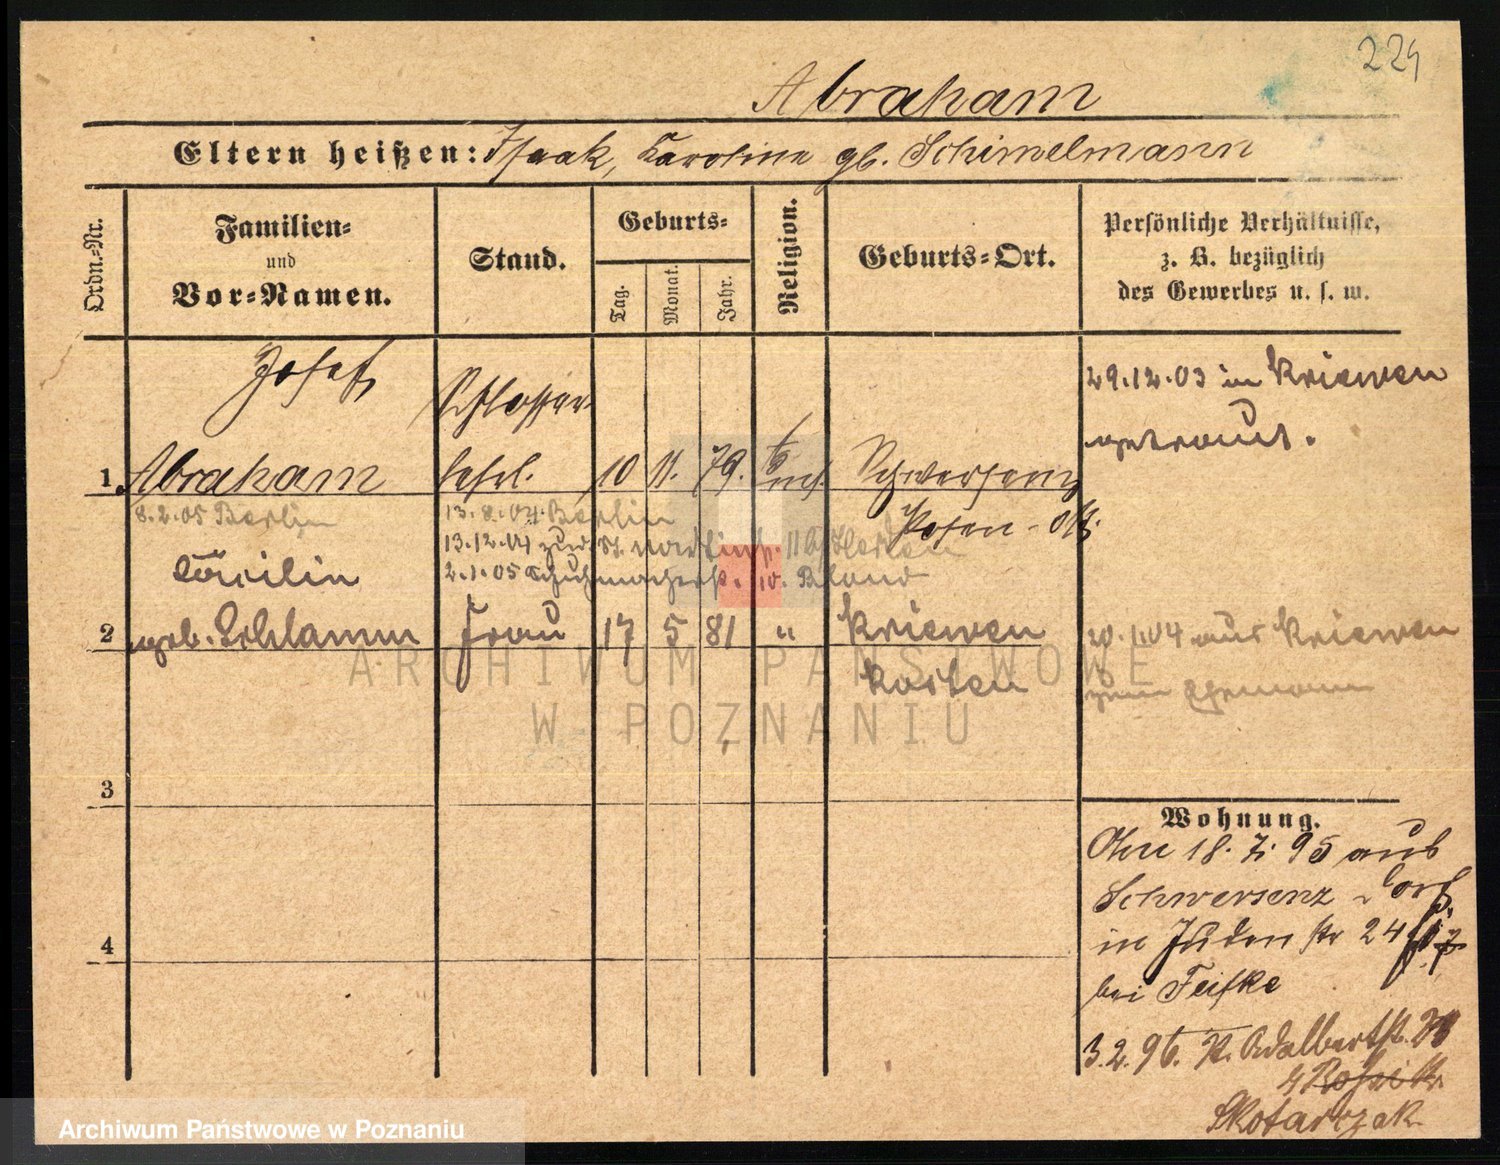 224
Abraham
Eltern heißen: Isaak, Karoline gb. Schimelmann
Ordn.-Nr.
Familien-
und
Vor-Namen.
Stand.
Geburts-
Tag.
Monat.
Jahr.
Religion.
Geburts-Ort.
Persönliche Verhältnisse,
z. B. bezüglich
des Gewerbes u. s. w.
Josef
Schlosser-
29.12.03 in Kriewen
getraut.
1 Abraham lehrl. 10 11. 79. Schwersenz
Posen-Ost.
8.2.05 Berlin
13.8.04. Berlin
13.12.04
2.1.05 Schuhmacherst. 10.
Cäcilin
2 geb. Schlamm Frau 17 5 81 " Kriewen
Kosten
20.1.04 aus Kriewen
zum Ehemann
3
4
Wohnung.
18. 7. 95 aus
Schwersenz Dorf
in Judenstr 24
bei Feifke
3.2.96. Adalbertst.
Skotarczak
ARCHIWUM PAŃSTWOWE
W POZNANIU
Archiwum Państwowe w Poznaniu